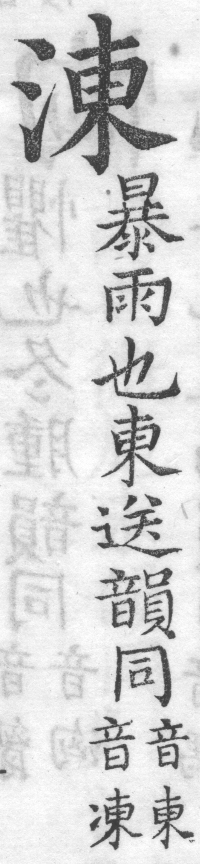 涷
暴雨也東送韻同音東音涷